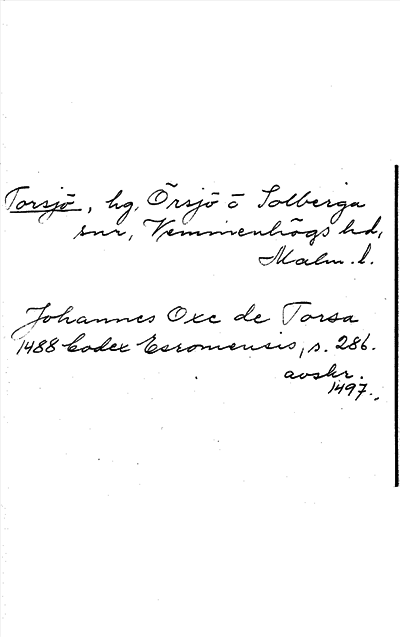 Torsjö, hg, Örsjö o Solberga
snr, Vemmenhögs hd,
Malm. l.
Johannes Oxe de Torsa
1488 Codex Esromensis, s. 286.
avskr.
1497.